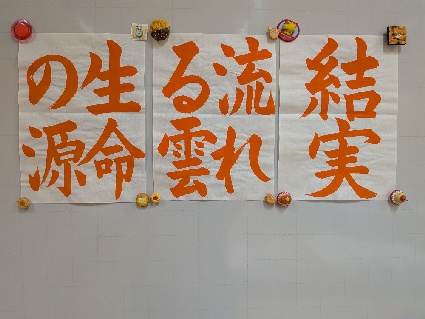 結実
流れ
る雲
生命
の源